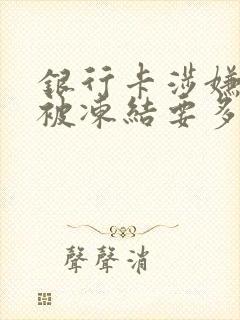 銀行卡涉嫌
被凍結要多
聲聲消